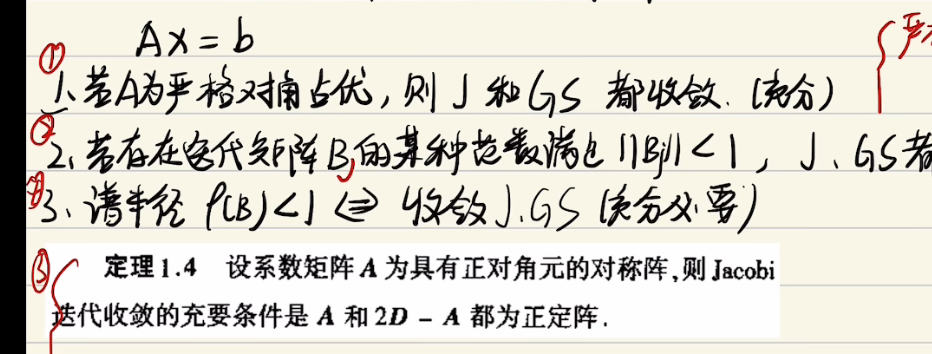 Ax = b
① 1、若A为严格对角占优，则 J 和 GS 都收敛．（充分）
② 2、若存在迭代矩阵 Bj 的某种范数满足 ||Bj|| < 1，J、GS若
④ 3、谱半径 ρ(B)<1 ⇔ 收敛 J、GS（充分必要）
③ 定理1.4 设系数矩阵 A 为具有正对角元的对称阵,则 Jacobi
迭代收敛的充要条件是 A 和 2D − A 都为正定阵.